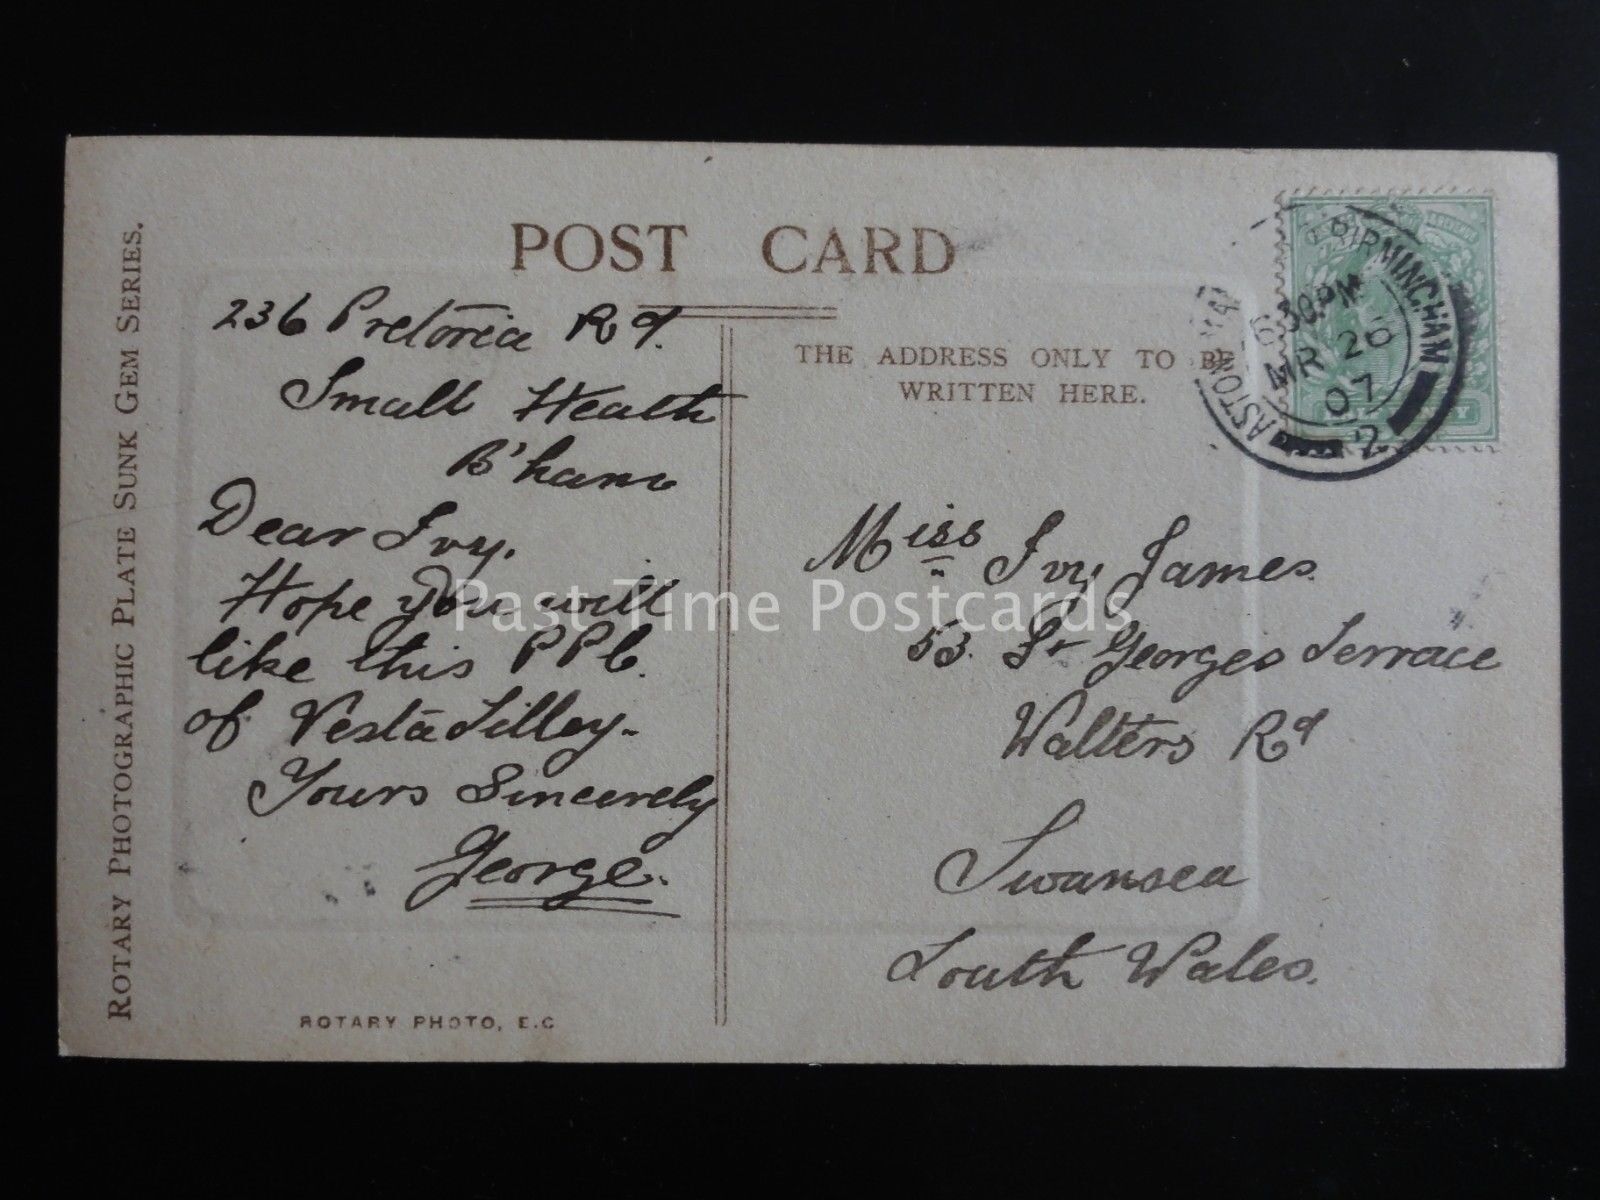 POST CARD
ROTARY PHOTOGRAPHIC PLATE SUNK GEM SERIES.
236 Pretoria Rd.
Small Heath
B'ham
Dear Ivy.
Hope you will
like this PPc.
of Vesta Tilley.
Yours Sincerely
George.
ROTARY PHOTO, E.C
THE ADDRESS ONLY TO BE
WRITTEN HERE.
BIRMINGHAM
ASTON
6 30PM
MR 26
07
2
Miss Ivy James.
53. St Georges Terrace
Walters Rd
Swansea
South Wales.
Past Time Postcards